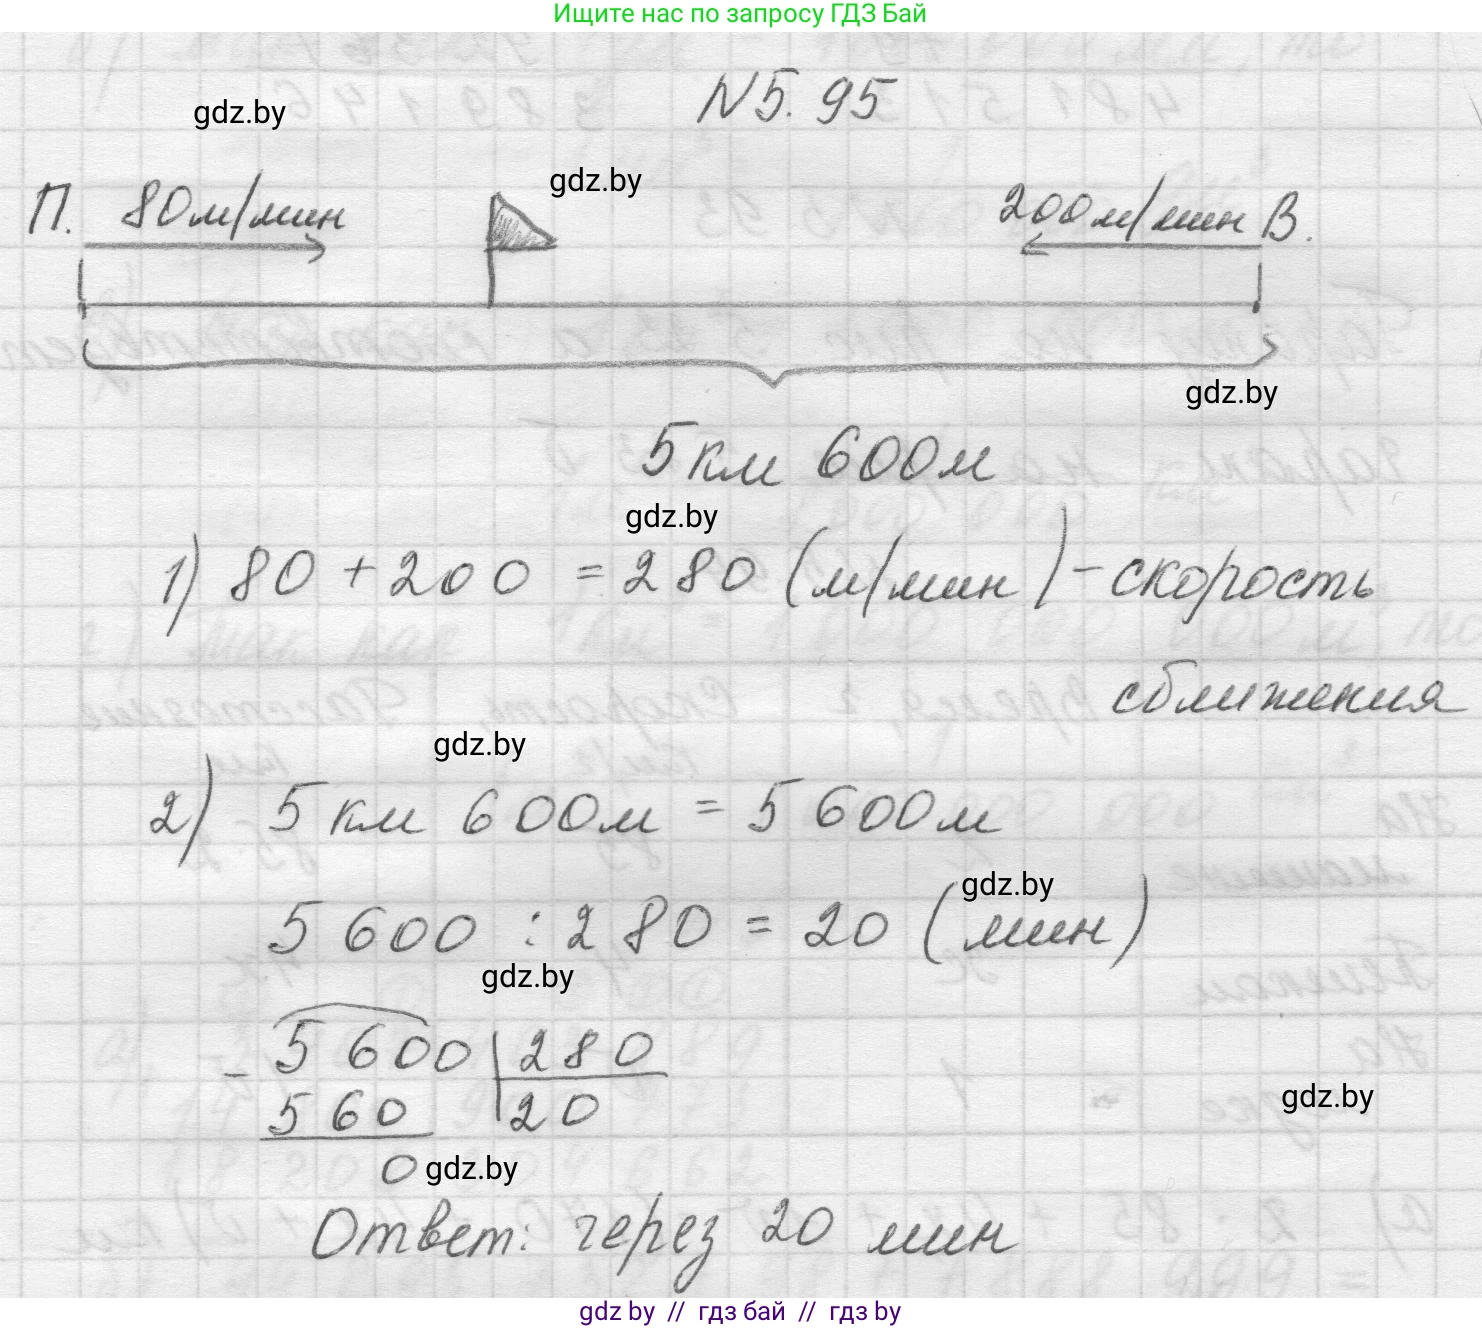 Ищите нас по запросу ГДЗ Бай
N5.95
gdz.by
gdz.by
П. 80м/мин 200м/мин В.
gdz.by
5км 600м
gdz.by
1) 80 + 200 = 280 (м/мин) - скорость
сближения
gdz.by
2) 5 км 600м = 5 600м
gdz.by
5 600 : 280 = 20 (мин)
gdz.by
- 5 600 280
560 20
gdz.by
0 gdz.by
Ответ: через 20 мин
gdz.by // гдз бай // гдз by